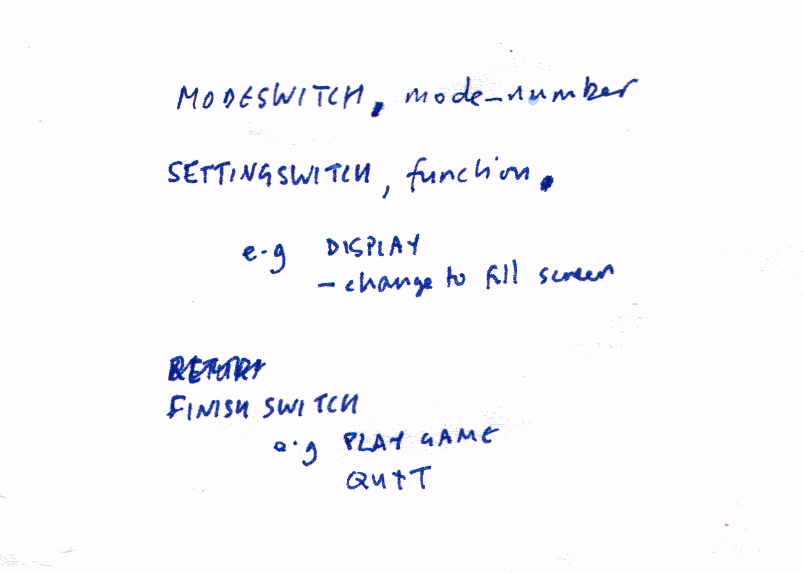 MODESWITCH, mode_number
SETTINGSWITCH, function.
e.g DISPLAY
- change to full screen
FINISH SWITCH
e.g PLAY GAME
QUIT